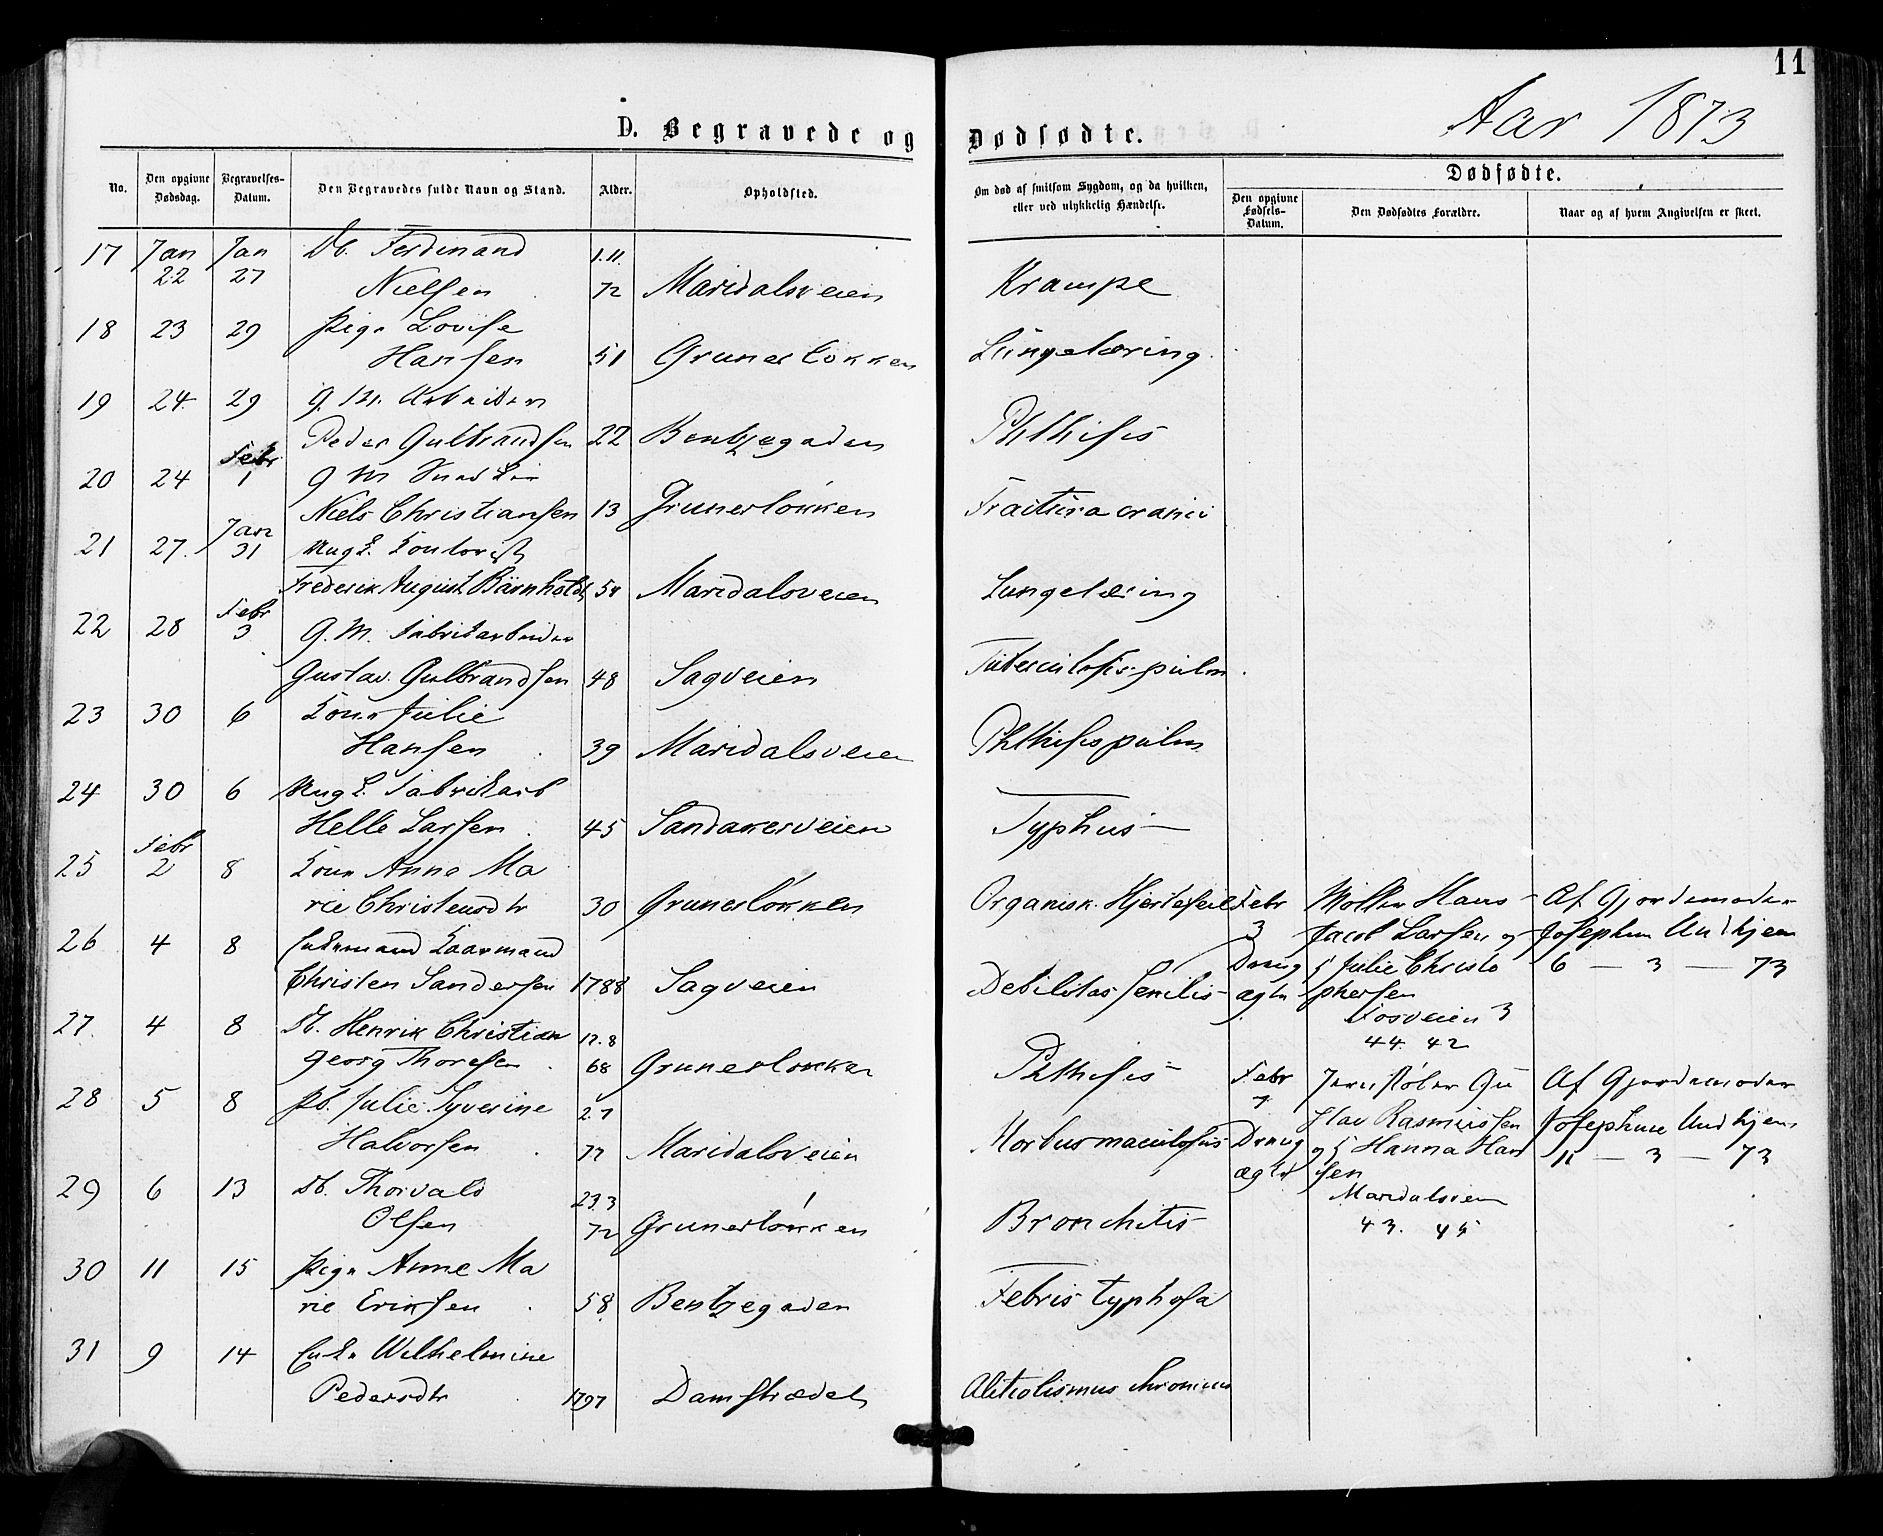 11
Aar 1873
D. Begravede og Dødfødte.
No. Den opgivne Dødsdag. Begravelses-Datum. Den Begravedes fulde Navn og Stand. Alder. Opholdsted. Om død af smitsom Sygdom, og da hvilken, eller ved ulykkelig Hændelse. Dødfødte.
Den opgivne Fødsels-Datum. Den Dødfødtes Forældre. Naar og af hvem Angivelsen er skeet.
17 Jan 22 Jan 27 Db. Ferdinand 1.11.
Nielsen 72 Maridalsveien Krampe
18 23 29 Pige Lovise
Hansen 51 Grunerløkken Lungetæring
19 24 29 g. M. Arbeider
Peder Gulbrandsen 22 Bentzegaden Phthisis
20 24 Febr 1 g M Snedker
Niels Christiansen 13 Grunerløkken Fractura cranii
21 27. Jan 31 Ungk. Kontorist
Frederik August Bärnholdt 54 Maridalsveien Lungetæring
22 28 Febr 3 G. M. Fabrikarbeider
Gustav Gulbrandsen 48 Sagveien Tuberculosis pulm.
23 30 6 Kone Julie
Hansen 39 Maridalsveien Phthisis pulm
24 30 6 Ungk. Fabrikarb
Helle Larsen 45 Sandakerveien Typhus
25 Febr 2 8 Kone Anne Ma
rie Christensdtr 30 Grunerløkken Organisk. Hjertefeil Febr Møller Hans Af Gjordemoder
26 4 8 Enkemand Kaarmand 3 Jacob Larsen og Josephine Undhjem
Christen Sandersen 1788 Sagveien Debilitas senilis Dreng Julie Christo 6 — 3 — 73
ægte phersen
Fosveien 3
44. 42
27. 4 8 Db. Henrik Christian 12.8
Georg Thoresen 68 Grunerløkken Phthisis Febr Jernstøber Gu Af Gjordemoder
28 5 8 Pb. Julie Syverine 27 stav Rasmussen Josephine Undhjem
Halvorsen 72 Maridalsveien Morbus maculosus Dreng og Hanna Han 11 — 3 — 73
ægte sen
Maridalsveien
43. 45
29 6 13 Db. Thorvald 29.3
Olsen 72 Grunerløkken Bronchitis
30 11 15 Pige Anne Ma
rie Eriksen 58 Bentzegaden Febris typhosa
31 9 14 Enke Wilhelmine
Pedersdtr 1797 Damstrædet Alcholismus chronicus